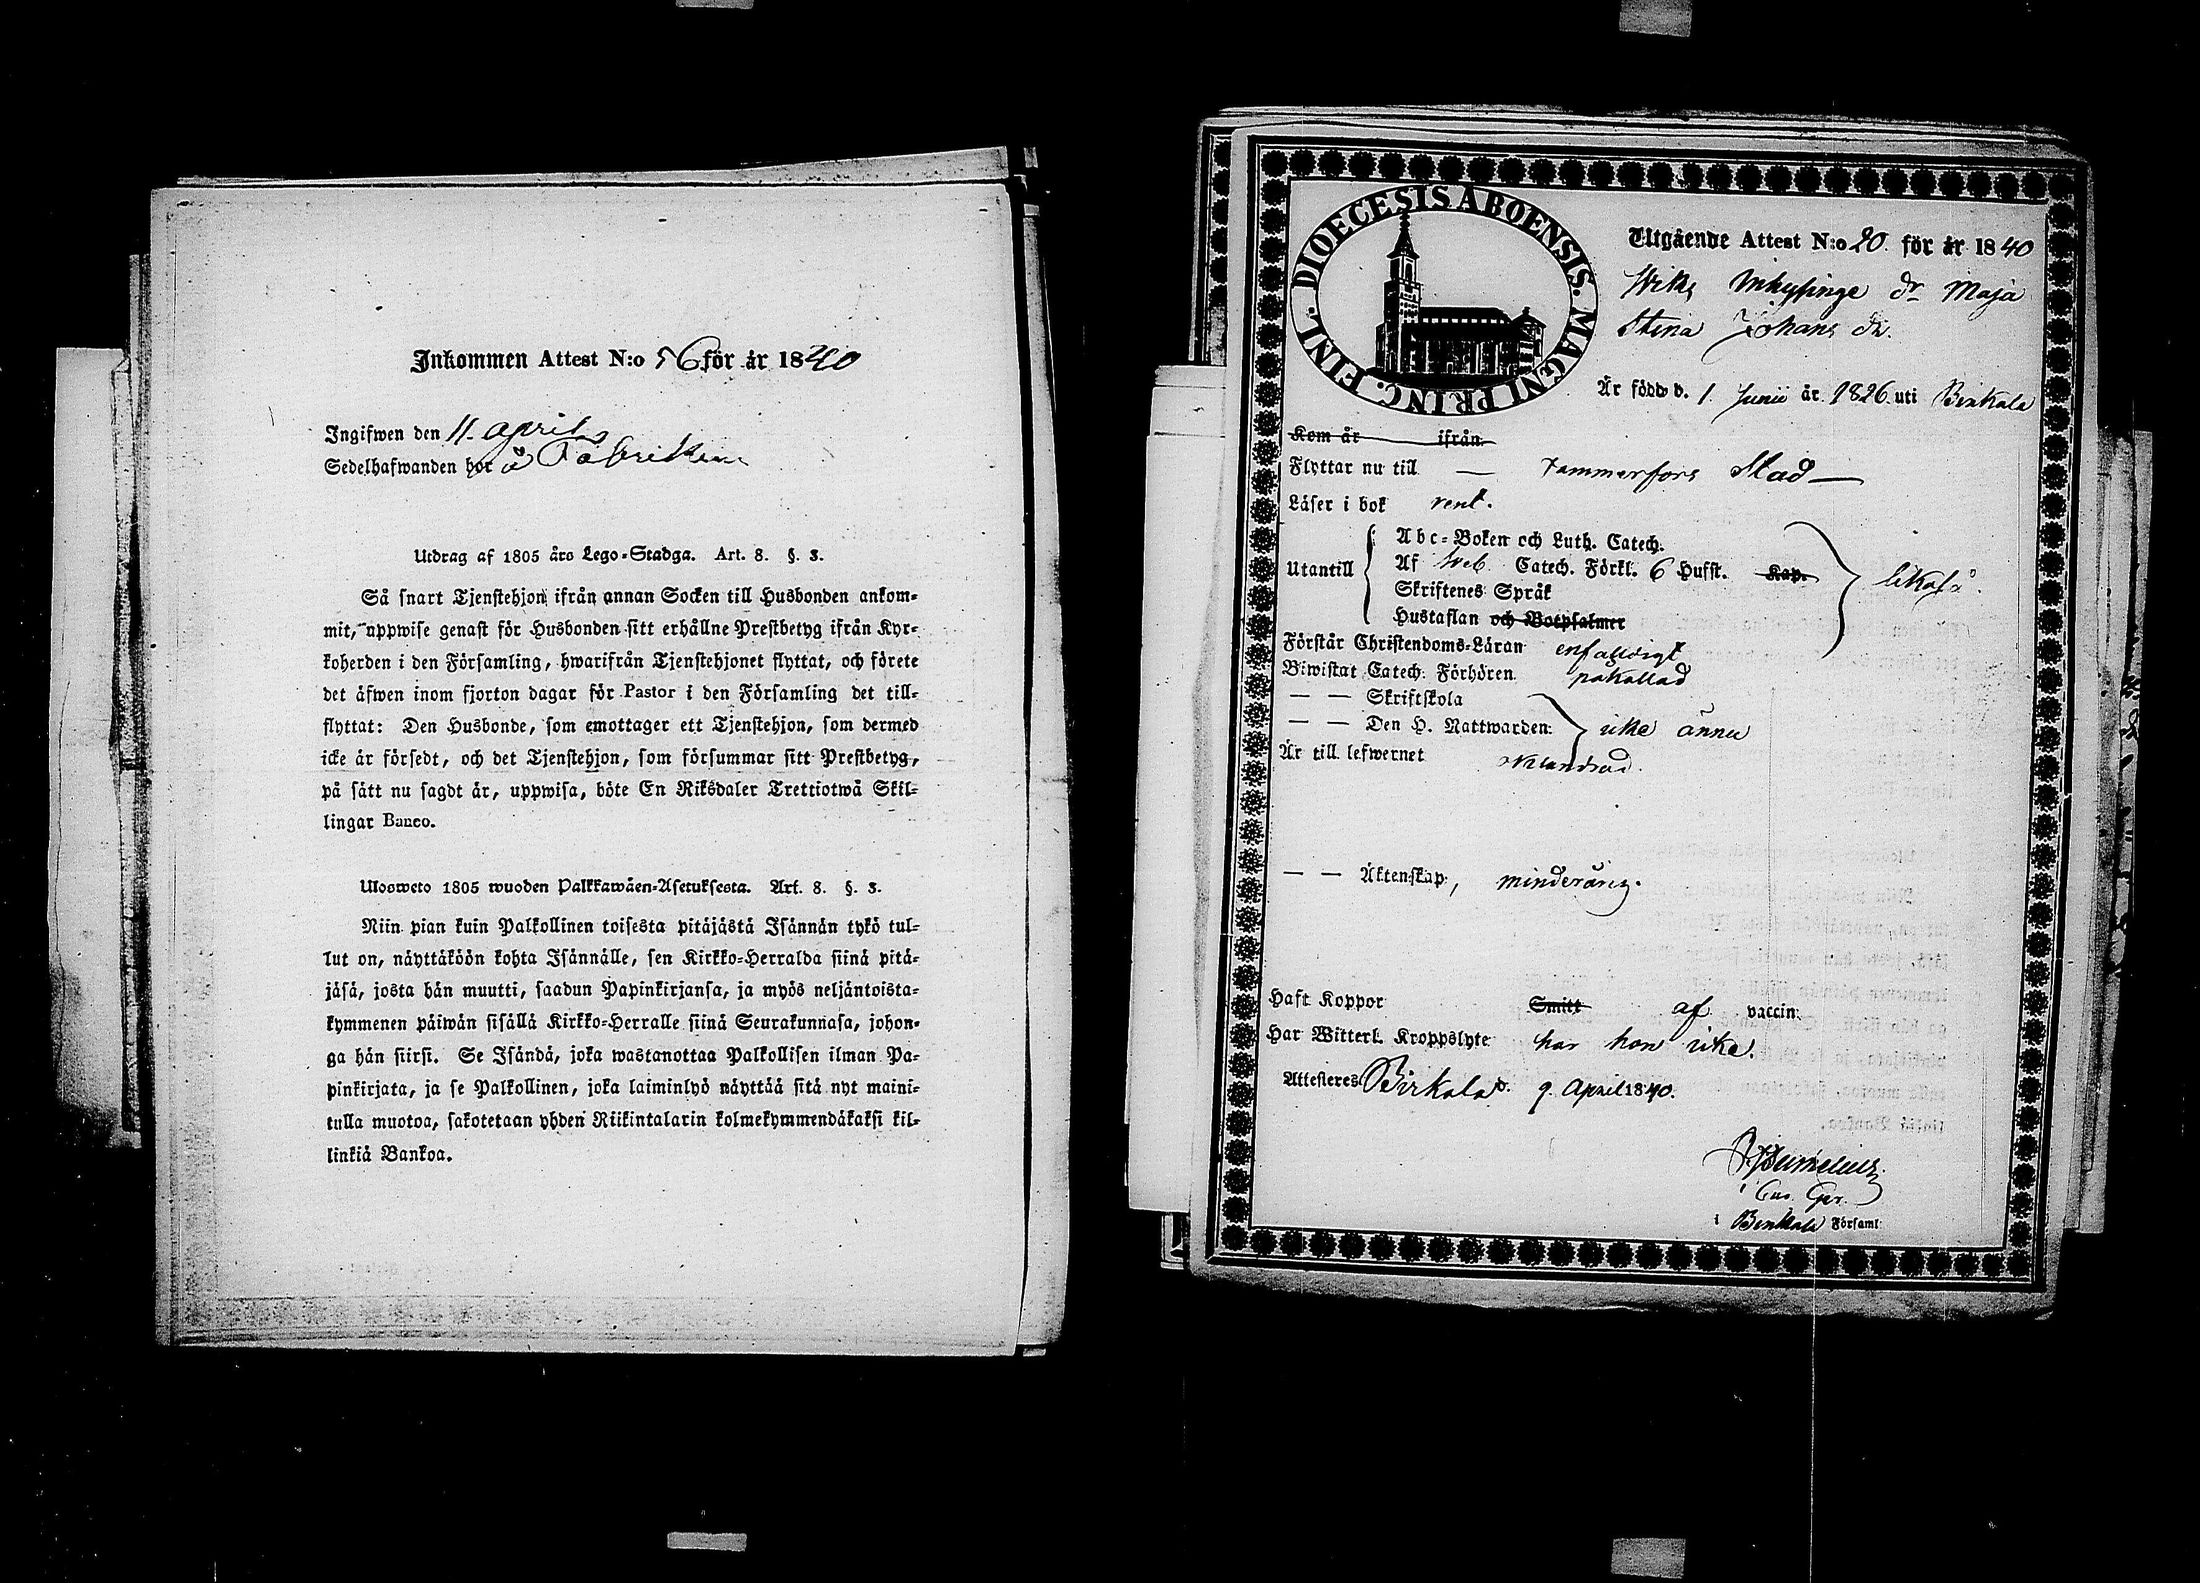 Inkommen Attest N:o 56 för år 1840
Ingifwen den 11. april
Sedelhafwanden hos å Fabriken
Utdrag af 1805 års Lego-Stadga. Art. 8. §. 3.
Så snart Tjenstehjon ifrån annan Socken till Husbonden ankom-
mit, uppwise genast för Husbonden sitt erhållne Prestbetyg ifrån Kyr-
koherden i den Församling, hwarifrån Tjenstehjonet flyttat, och förete
det äfwen inom fjorton dagar för Pastor i den Församling det till-
flyttat: Den Husbonde, som emottager ett Tjenstehjon, som dermed
icke är försedt, och det Tjenstehjon, som försummar sitt Prestbetyg,
på sätt nu sagdt är, uppwisa, böte En Riksdaler Trettiotwå Skil-
lingar Banco.
Ulosweto 1805 wuoden Palkkawäen-Asetuksesta. Art. 8. §. 3.
Niin pian kuin Palkollinen toisesta pitäjästä Isännän tykö tul-
lut on, näyttäköön kohta Isännälle, sen Kirkko-Herralda siinä pitä-
jäsä, josta hän muutti, saadun Papinkirjansa, ja myös neljäntoista-
kymmenen päiwän sisällä Kirkko-Herralle siinä Seurakunnasa, johon-
ga hän siirsi. Se Isändä, joka wastanottaa Palkollisen ilman Pa-
pinkirjata, ja se Palkollinen, joka laiminlyö näyttää sitä nyt maini-
tulla muotoa, sakotetaan yhden Riikintalarin kolmekymmendäkaksi kil-
linkiä Bankoa.
DIOECESIS ABOENSIS. MAGNI PRINC. FINL.
Utgående Attest N:o 20. för år 1840
Piks dr Maja
Stina Johans dr.
Är född d. 1. Junii år 1826 uti Birkala
Kom år ifrån
Flyttar nu till — Tammerfors Stad —
Läser i bok rent.
Abc-Boken och Luth. Catech.
Utantill Af Sveb. Catech. Förkl. 6 Hufst. Kap. likaså.
Skriftenes Språk
Hustaflan och Botpsalmer
Förstår Christendoms-Läran enfaldigt
Biwistat Catech. Förhören påkallad
— — Skriftskola
— — Den H. Nattwarden icke ännu
Är till lefwernet oklandrad.
— — Äktenskap, minderårig.
Haft Koppor Smitt af vaccin.
Har Witterl. Kroppslyte har hon icke.
Attesteres Birkala d. 9. April 1840.
i Birkala Församl.